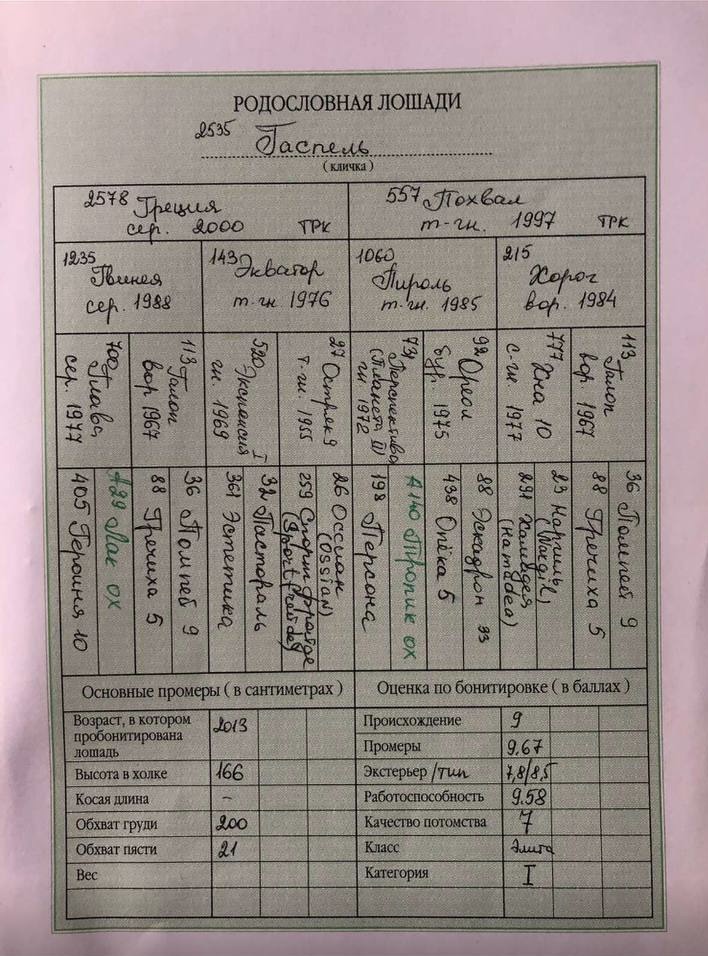 РОДОСЛОВНАЯ ЛОШАДИ
2535 Гаспель
( кличка )
2578 Греция
сер. 2000 ТРК
557 Похвал
т-гн. 1997 ТРК
1235
Гвинея
сер. 1988
143 Экватор
т. гн 1976
1060
Пироль
т. гн. 1985
215
Хорог
вор. 1984
700 Глава
сер. 1977
113 Галоп
вор 1967
520 Экспансия I
гн. 1969
27 Остряк 9
т-гн. 1955
731 Перспектива
(Планета II)
гн 1972
92 Ореол
бур. 1975
777 Хна 10
с-гн 1977
113 Галоп
вор. 1967
405 Героиня 10
А29 Лак ох
88 Гречиха 5
36 Помпей 9
361 Эстетика
32 Пастораль
259 Спорт
26 Оссиан
(OSSIAN)
198 Персона
А140 Тропик ох
438 Опёка 5
88 Эскадрон 33
291 Хамадея
(Hamadea)
23 Наргиль
(Nargil)
88 Гречиха 5
36 Помпей 9
Основные промеры ( в сантиметрах )
Возраст, в котором
пробонитирована
лошадь 2013
Высота в холке 166
Косая длина –
Обхват груди 200
Обхват пясти 21
Вес
Оценка по бонитировке ( в баллах )
Происхождение 9
Промеры 9,67
Экстерьер /тип 7,8/8,5
Работоспособность 9.58
Качество потомства 7
Класс элита
Категория I